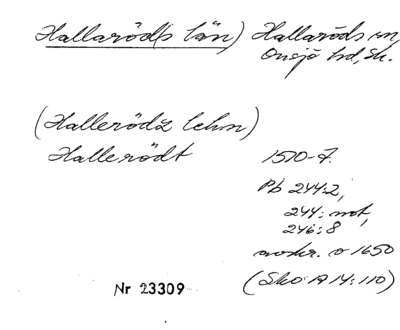 Hallaröd(s län) Hallaröds sn,
Onsjö hd, Sk.
(Hallerödz lehn)
Hallerödt 1570-t.
Pb 244:2,
244: not,
246:8
avskr. o 1650
(Sko A 14:110)
Nr 23309